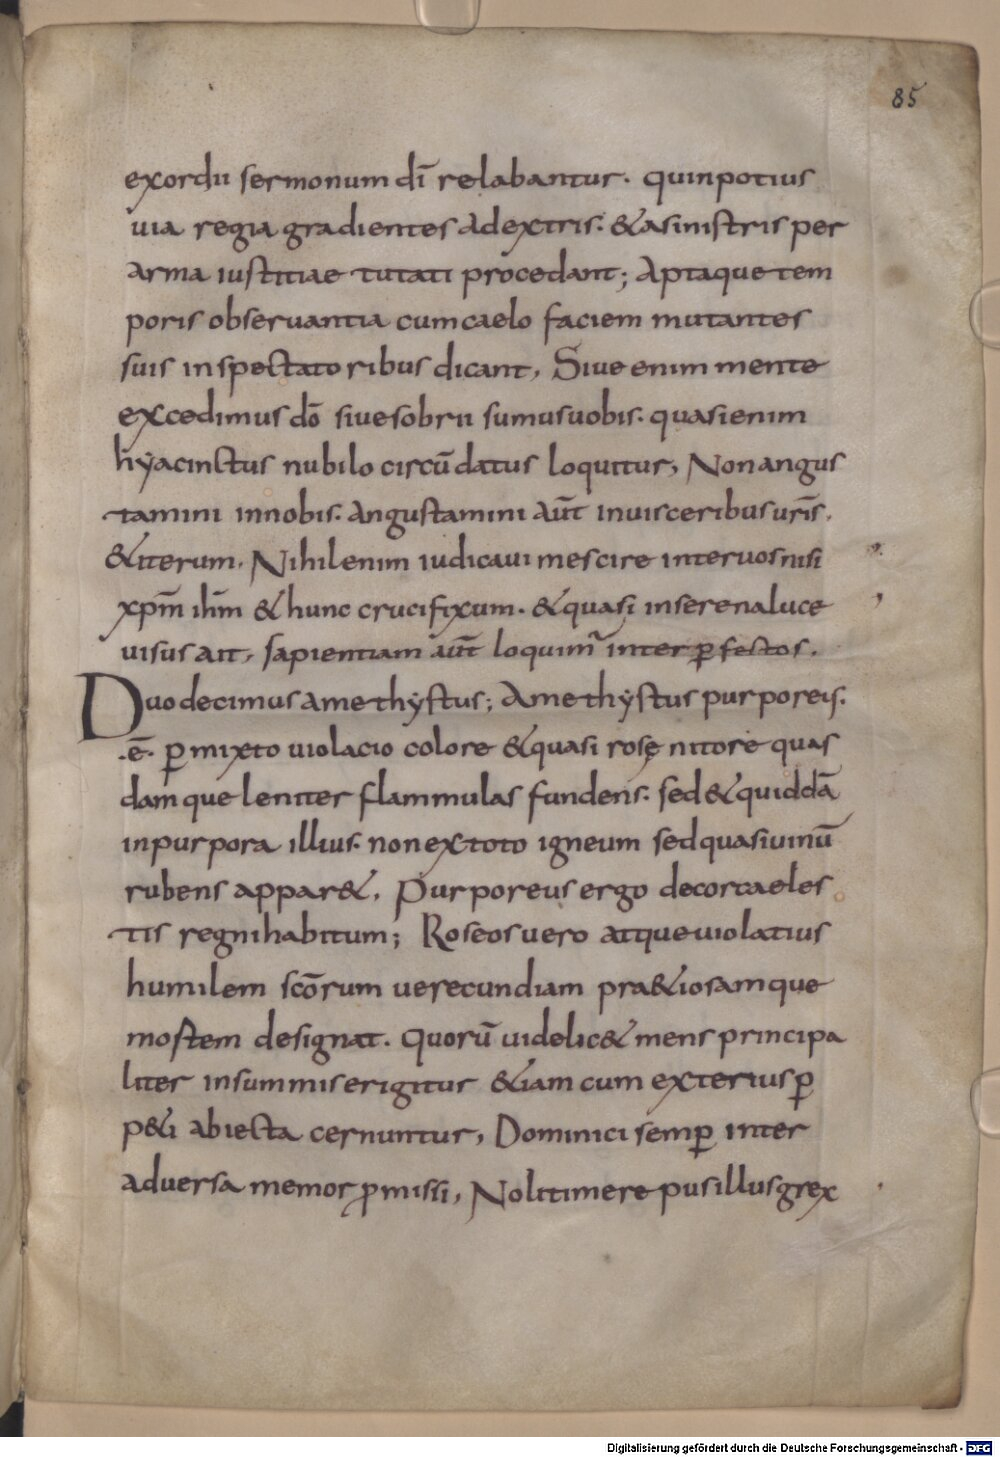 85
exordii sermonum dī relabantur. quinpotius
uia regia gradientes adextris. &asinistris per
arma iustitiae tutati procedant; Aptaque tem
poris obseruantia cumcaelo faciem mutantes
suis inspectatoribus dicant, Siue enim mente
excedimus dō siuesobrii sumusuobis. quasienim
hÿacinctus nubilo circūdatus loquitur, Nonangus
tamini innobis. angustamini aūt inuisceribusur̄is.
&iterum, Nihilenim iudicaui mescire interuosnisi
xpm̄ ihm̄ & hunc crucifixum. &quasi inserenaluce
uisus ait, sapientiam aūt loquim̄ inter ꝑfectos.
Duodecimus amethÿstus; Amethÿstus purporeis.
.ē. ꝑmixto uiolacio colore &quasi rosę nitore quas
damque leniter flammulas fundens. sed&quiddā
inpurpora illius. nonextoto igneum sedquasiuinū
rubens appar&, Purporeus ergo decorcaeles
tis regnihabitum; Roseosuero atqueuiolatius
humilem scōrum uerecundiam pra&iosamque
mostem designat. Quorū uidelic& mens principa
liter insummiserigitur &iam cum exteriusꝑ
p&i abiecta cernuntur, Dominici semꝑ inter
aduersa memor ꝓmissi, Nolitimere pusillusgrex
Digitalisierung gefördert durch die Deutsche Forschungsgemeinschaft - DFG